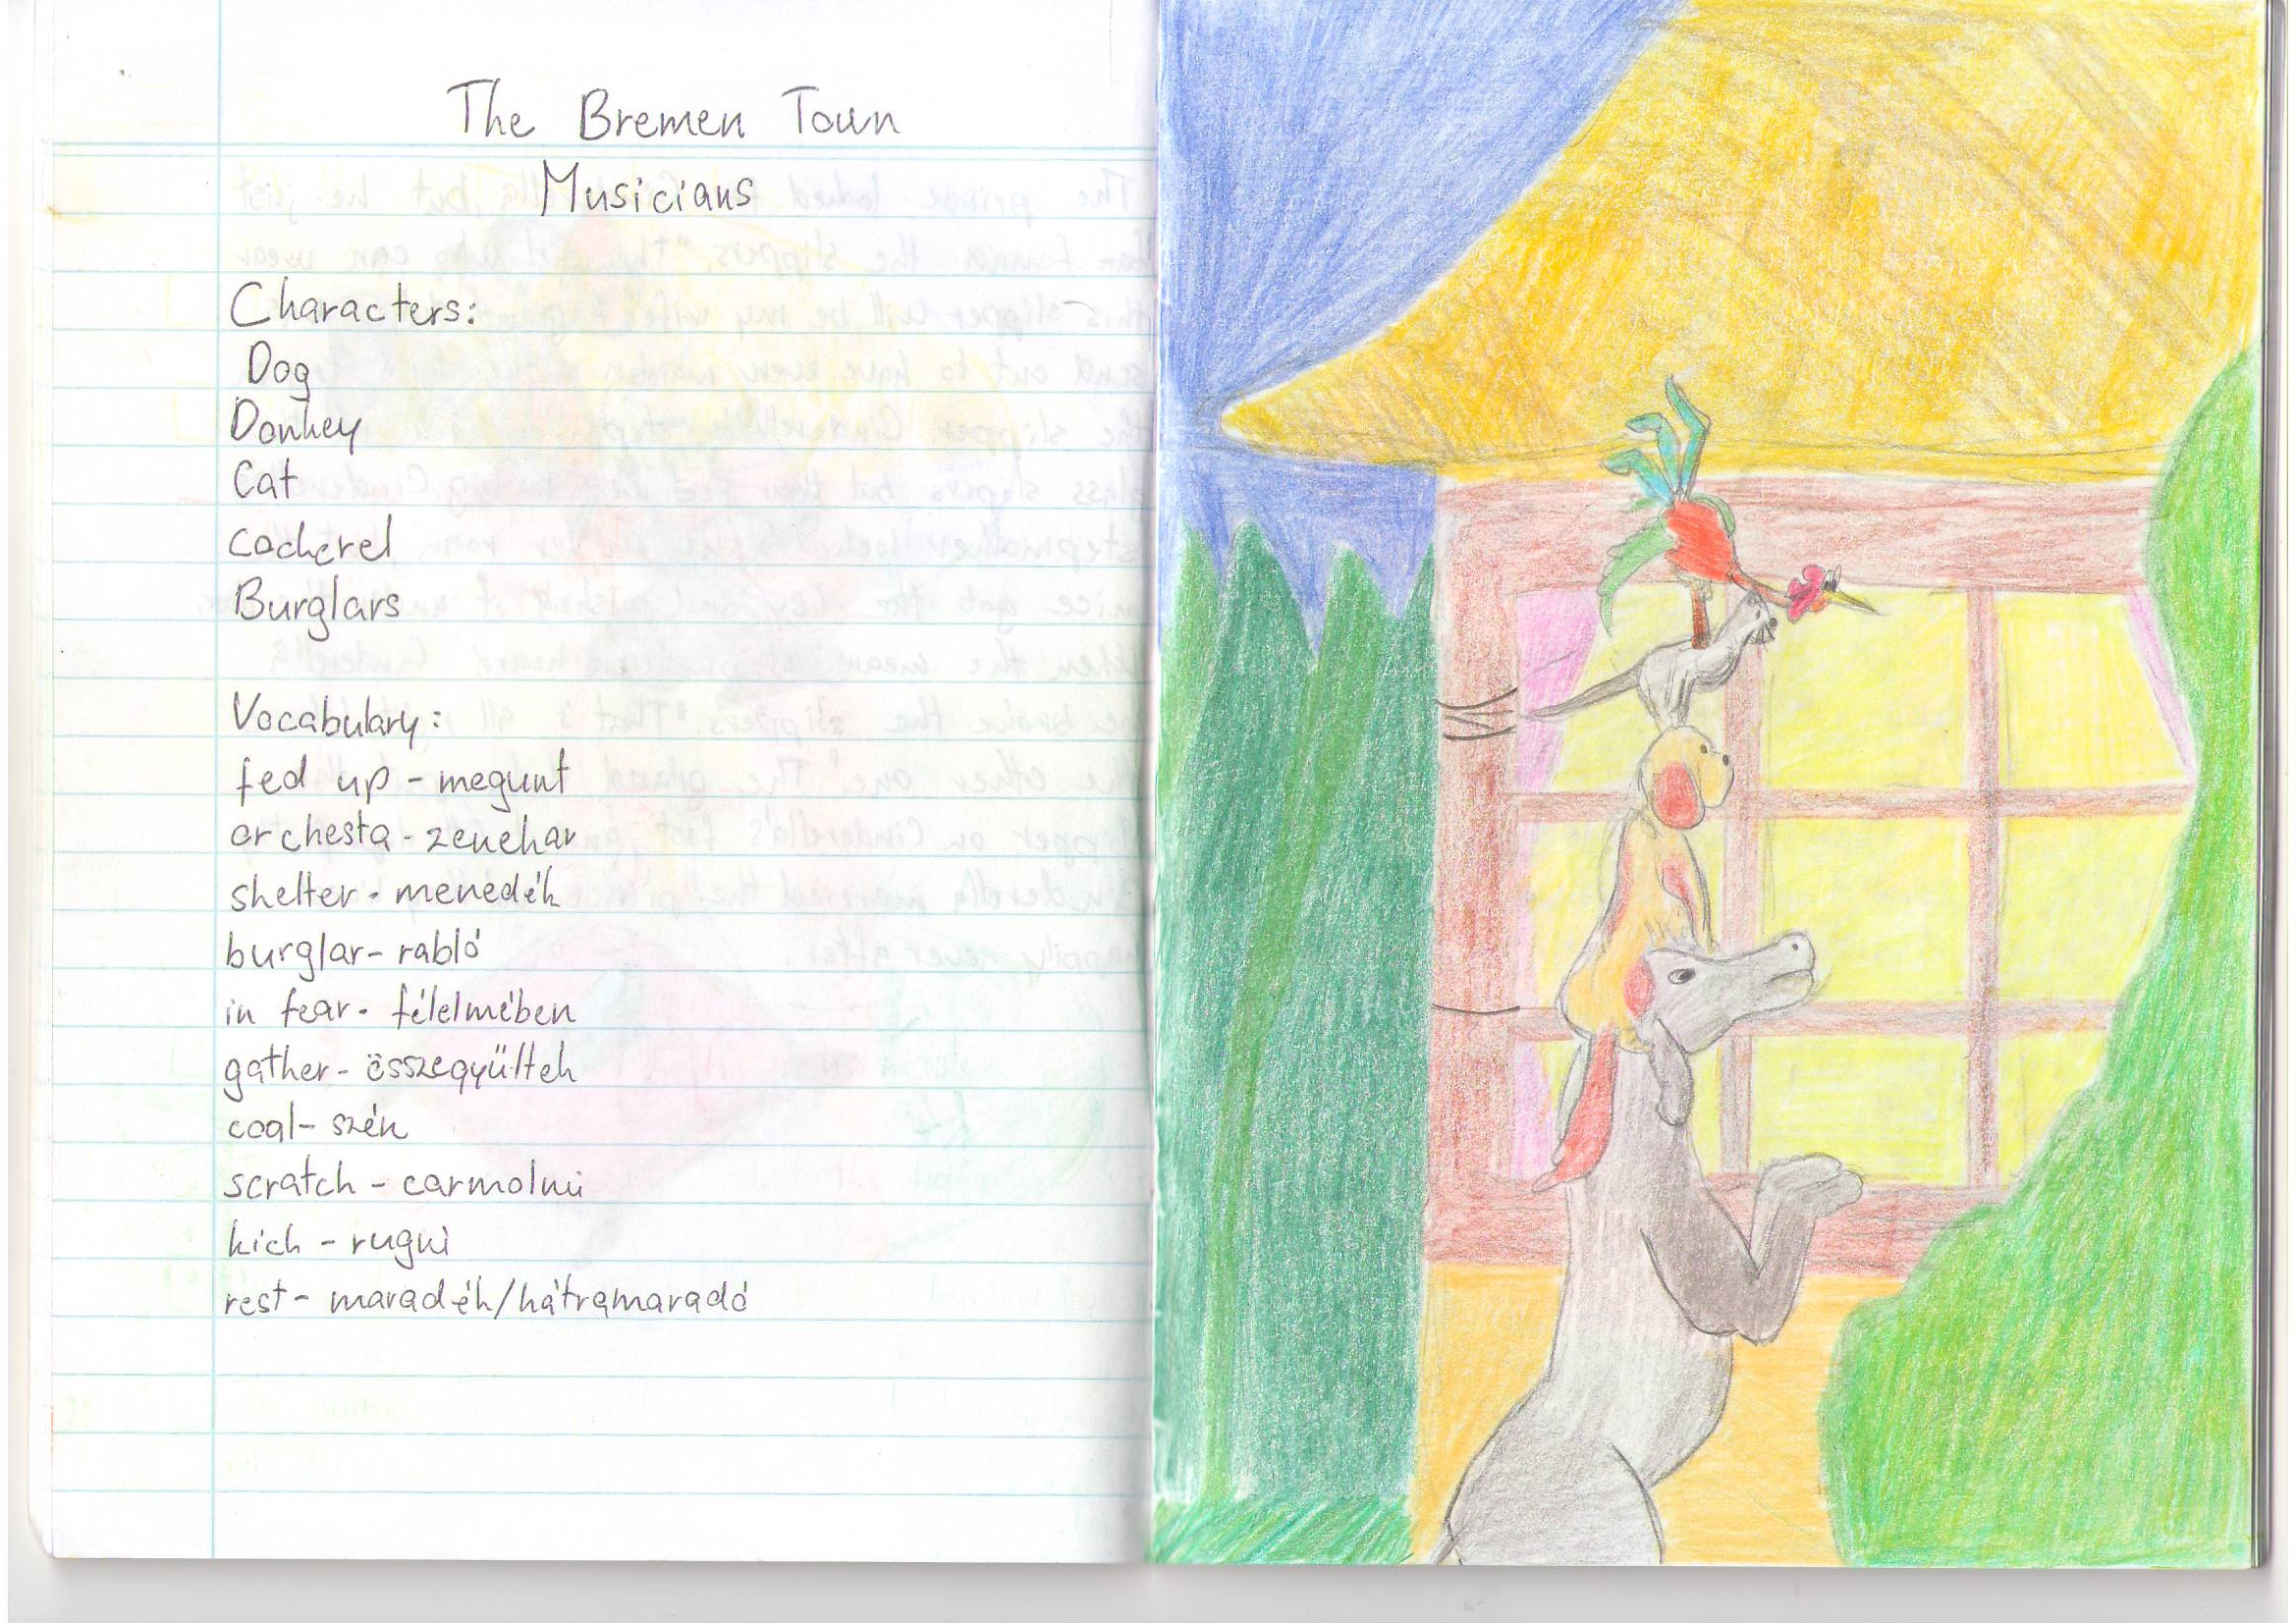 The Bremen Town
Musicians
Characters:
Dog
Donkey
Cat
Cockerel
Burglars
Vocabulary:
fed up - megunt
orchesta - zenekar
shelter - menedék
burglar - rabló
in fear - félelmében
gather - összegyültek
coal - szén
scratch - carmolni
kick - rugni
rest - maradék/hátramaradó